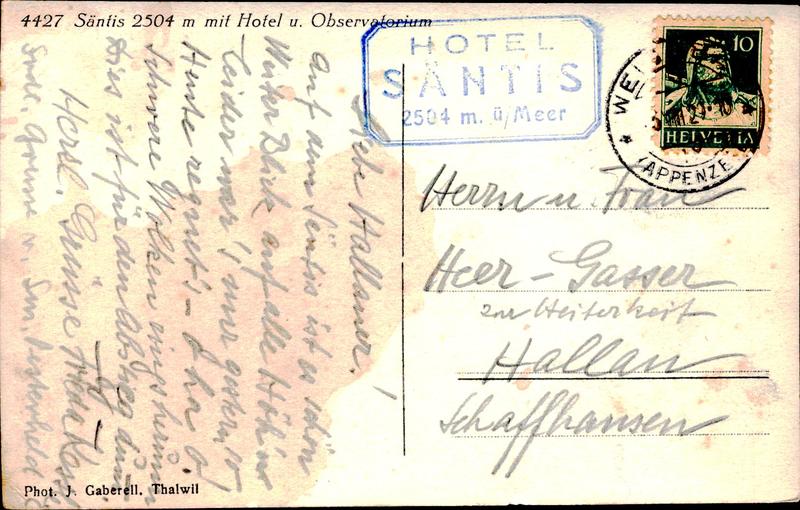 4427 Säntis 2504 m mit Hotel u. Observatorium
HOTEL
SÄNTIS
2504 m. ü/Meer
10
HELVETIA
(APPENZE
Liebe Hallauer!
Auf dem Säntis ist es schön
Weiter Blick auf alle Höh'n
Leider war's nur gestern so
Heute regnet's
Schwere Wolken ringsherum
Dies ist für den Abstieg dumm
Herzl. Grüsse
Herrn u. Frau
Heer-Gasser
zur Heiterkeit
Hallau
Schaffhausen
Phot. J. Gaberell, Thalwil